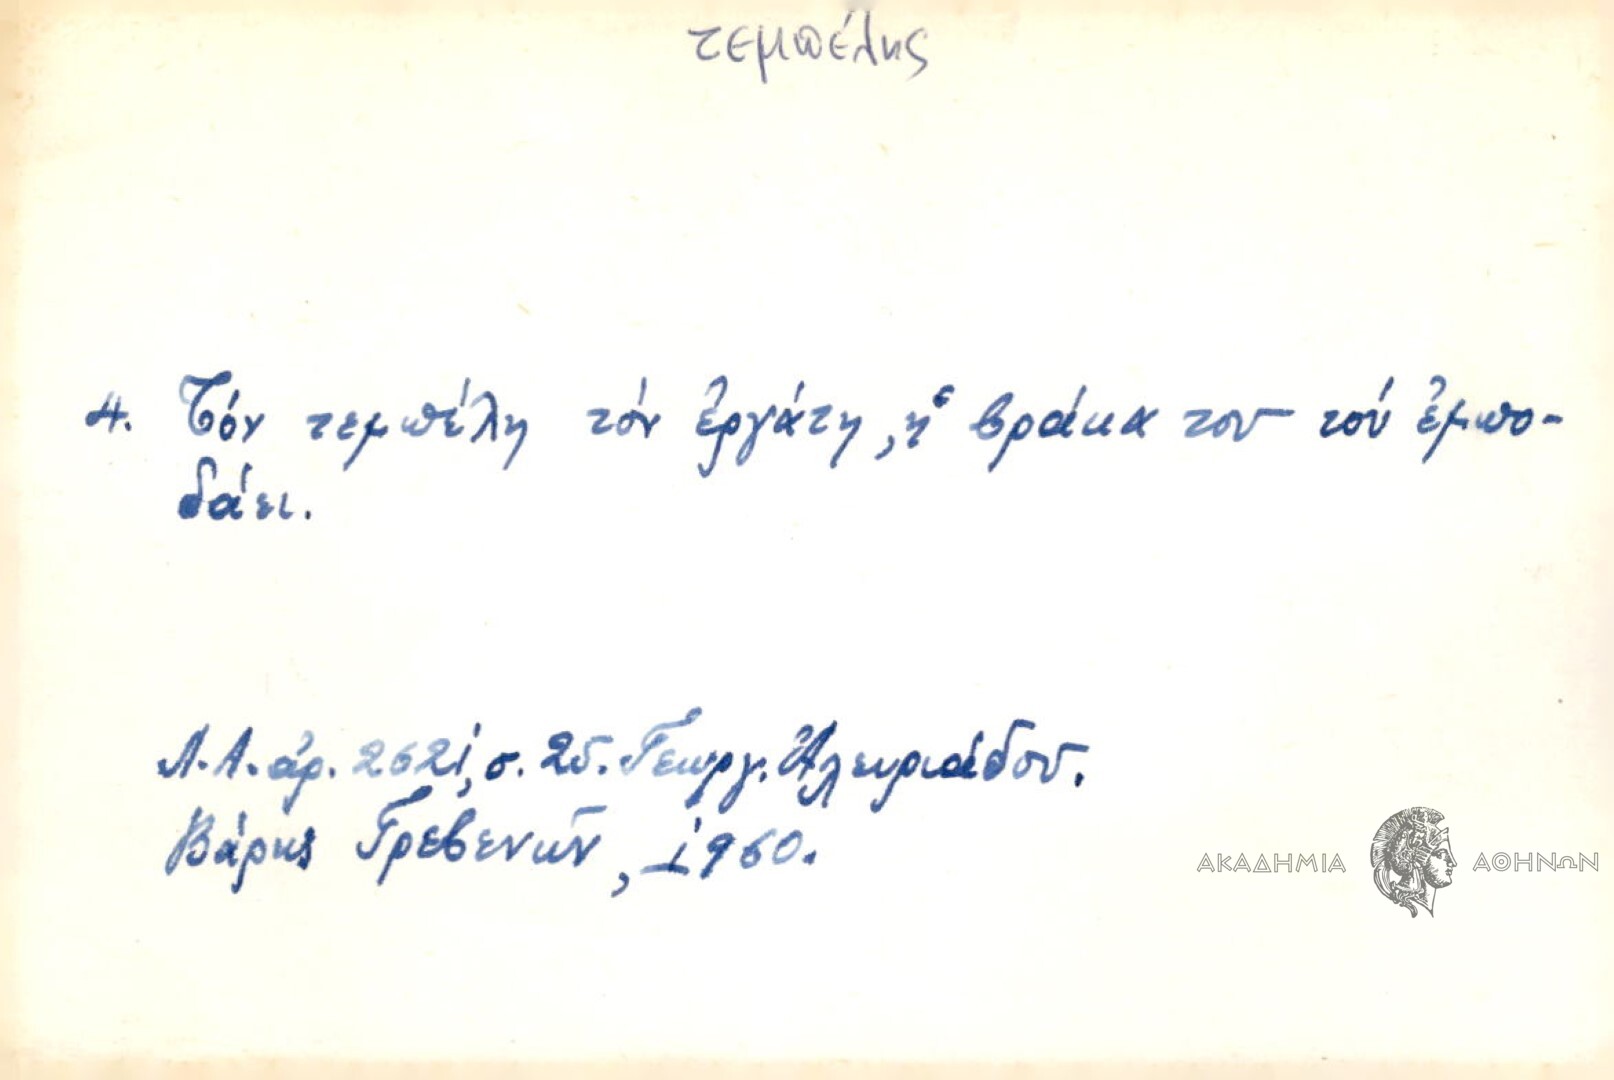 τεμπέλης
4. Τόν τεμπέλη τόν ἐργάτη, ἡ βράκα του τού ἐμπο-
δάει.
Λ.Α. ἀρ. 2621, σ. 25. Γεωργ. Ἀλευριάδου.
Βάρης Γρεβενῶν, 1960.
ΑΚΑΔΗΜΙΑ ΑΘΗΝΩΝ